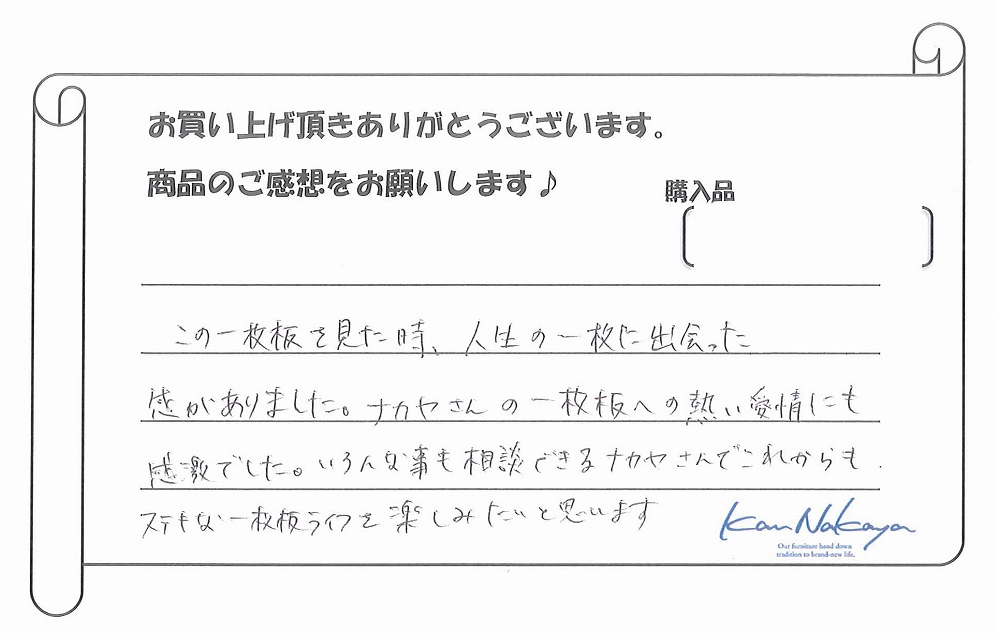 お買い上げ頂きありがとうございます。
商品のご感想をお願いします♪
購入品
この一枚板を見た時、人生の一枚に出会った
感がありました。ナカヤさんの一枚板への熱い愛情にも
感激でした。いろんな事も相談できるナカヤさんでこれからも
ステキな一枚板ライフを楽しみたいと思います
Kan Nakaya
Our furniture hand down
tradition to brand-new life.